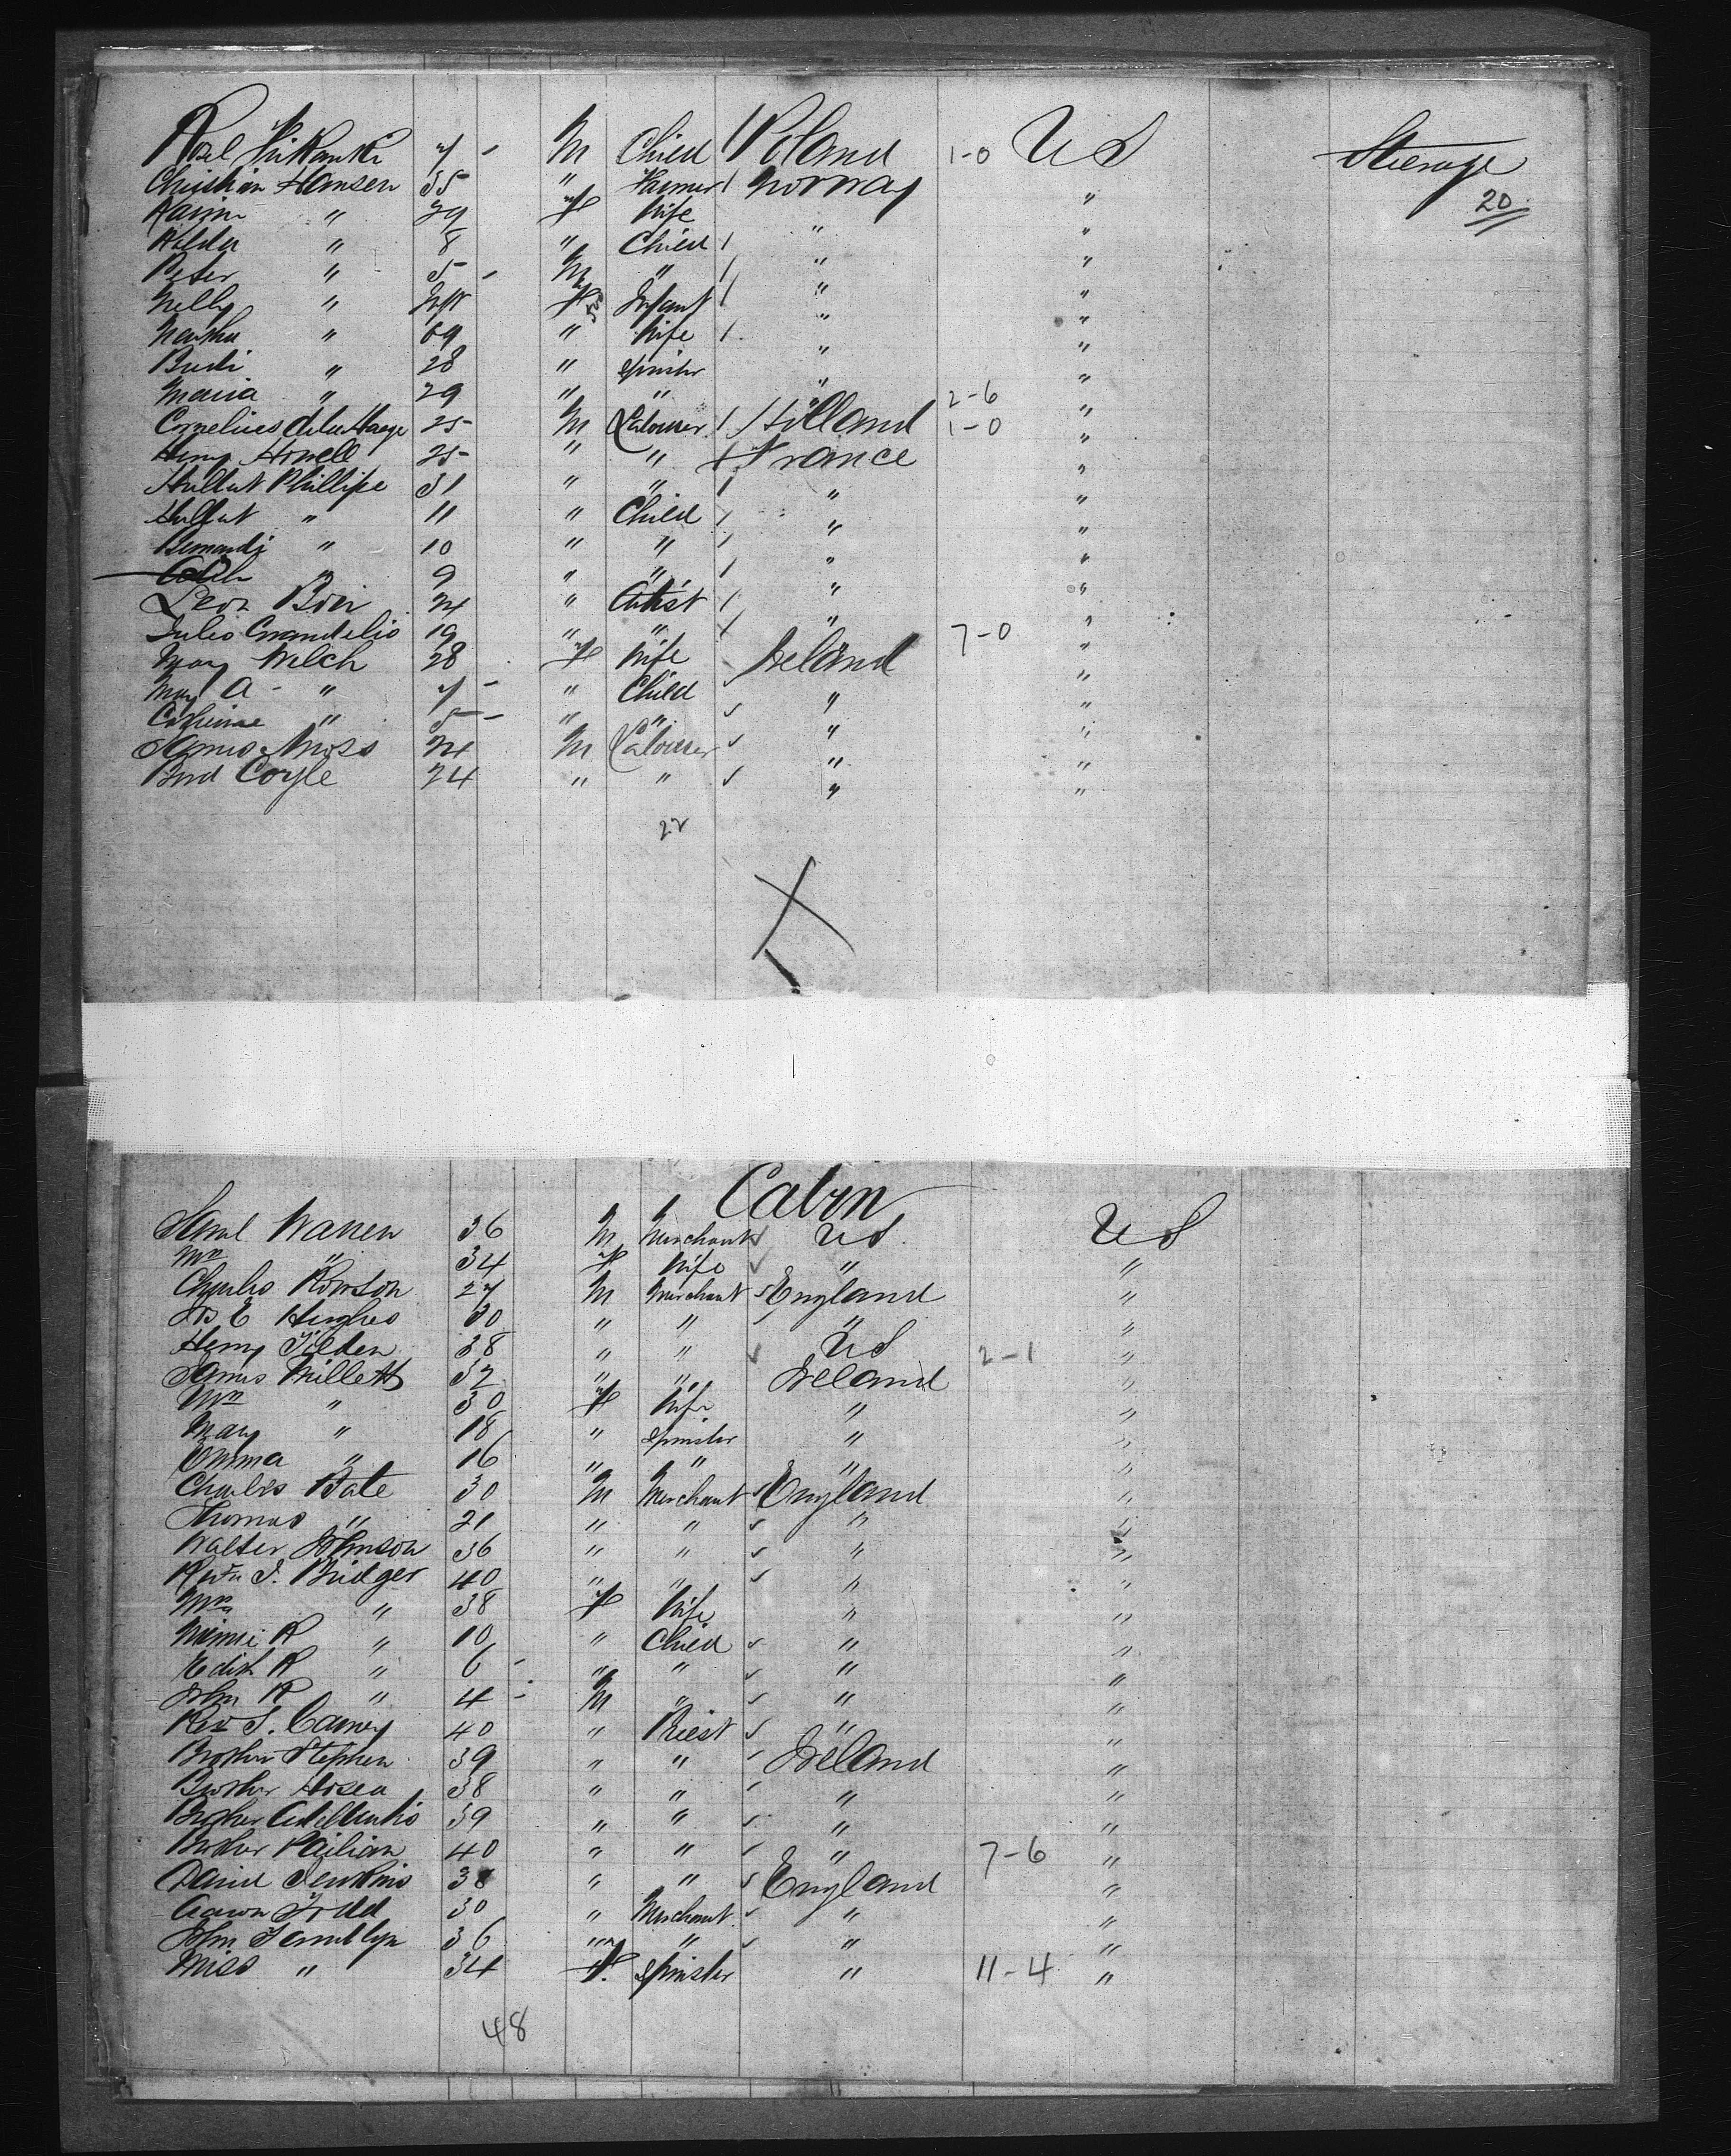 7 - M Child / Poland 1-0 US Steerage
Christian Hansen 35 " Farmer / Norway " 20
" 29 F Wife " "
" 8 " Child / " "
Peter " 5 - M " / " "
Nelly " Inft F Infant / " "
" 69 " Wife / " "
" 28 " Spinster " "
Maria " 29 " " " 2-6 "
Cornelius de la Haege 25 M Labourer / Holland 1-0 "
Henry 25 " " / France "
Phillipe 31 " " / " "
" 11 " Child / " "
" 10 " " / " "
" 9 " " / " "
Leon 24 " Artist / " "
Jules 19 " " / " 7-0 "
Mary Welch 28 F Wife Ireland "
Mary A - " 7 - " Child ✓ " "
Catherine " 5 - " " ✓ " "
James Moss 24 M Labourer ✓ " "
Coyle 24 " " ✓ " "
22
X
Cabin
Saml Warren 36 M Merchant ✓ US US
Mrs " 34 F Wife ✓ " "
Charles Rowson 27 M Merchant ✓ England "
E Hughes 30 " " ✓ " "
Henry Tilden 38 " " ✓ US 2-1 "
James Millett 32 " " Ireland "
Mrs " 30 F Wife " "
Mary " 18 " Spinster " "
Emma " 16 " " " "
Charles Bate 30 M Merchant ✓ England "
Thomas " 21 " " ✓ " "
Walter Johnson 36 " " ✓ " "
J. Bridger 40 " " ✓ " "
Mrs " 38 F Wife " "
R " 10 " Child ✓ " "
Edith R " 6 - " " ✓ " "
John R " 4 - M " ✓ " "
Rev 40 " Priest ✓ " "
Brother Stephen 39 " " ✓ Ireland "
Brother Hosea 38 " " ✓ " "
Brother 39 " " ✓ " "
Brother 40 " " ✓ " 7-6 "
David Jenkins 38 " " ✓ England "
Aaron Todd 30 " Merchant ✓ " "
John Tamblyn 36 " " ✓ " "
Miss " 34 F. Spinster " 11-4 "
48